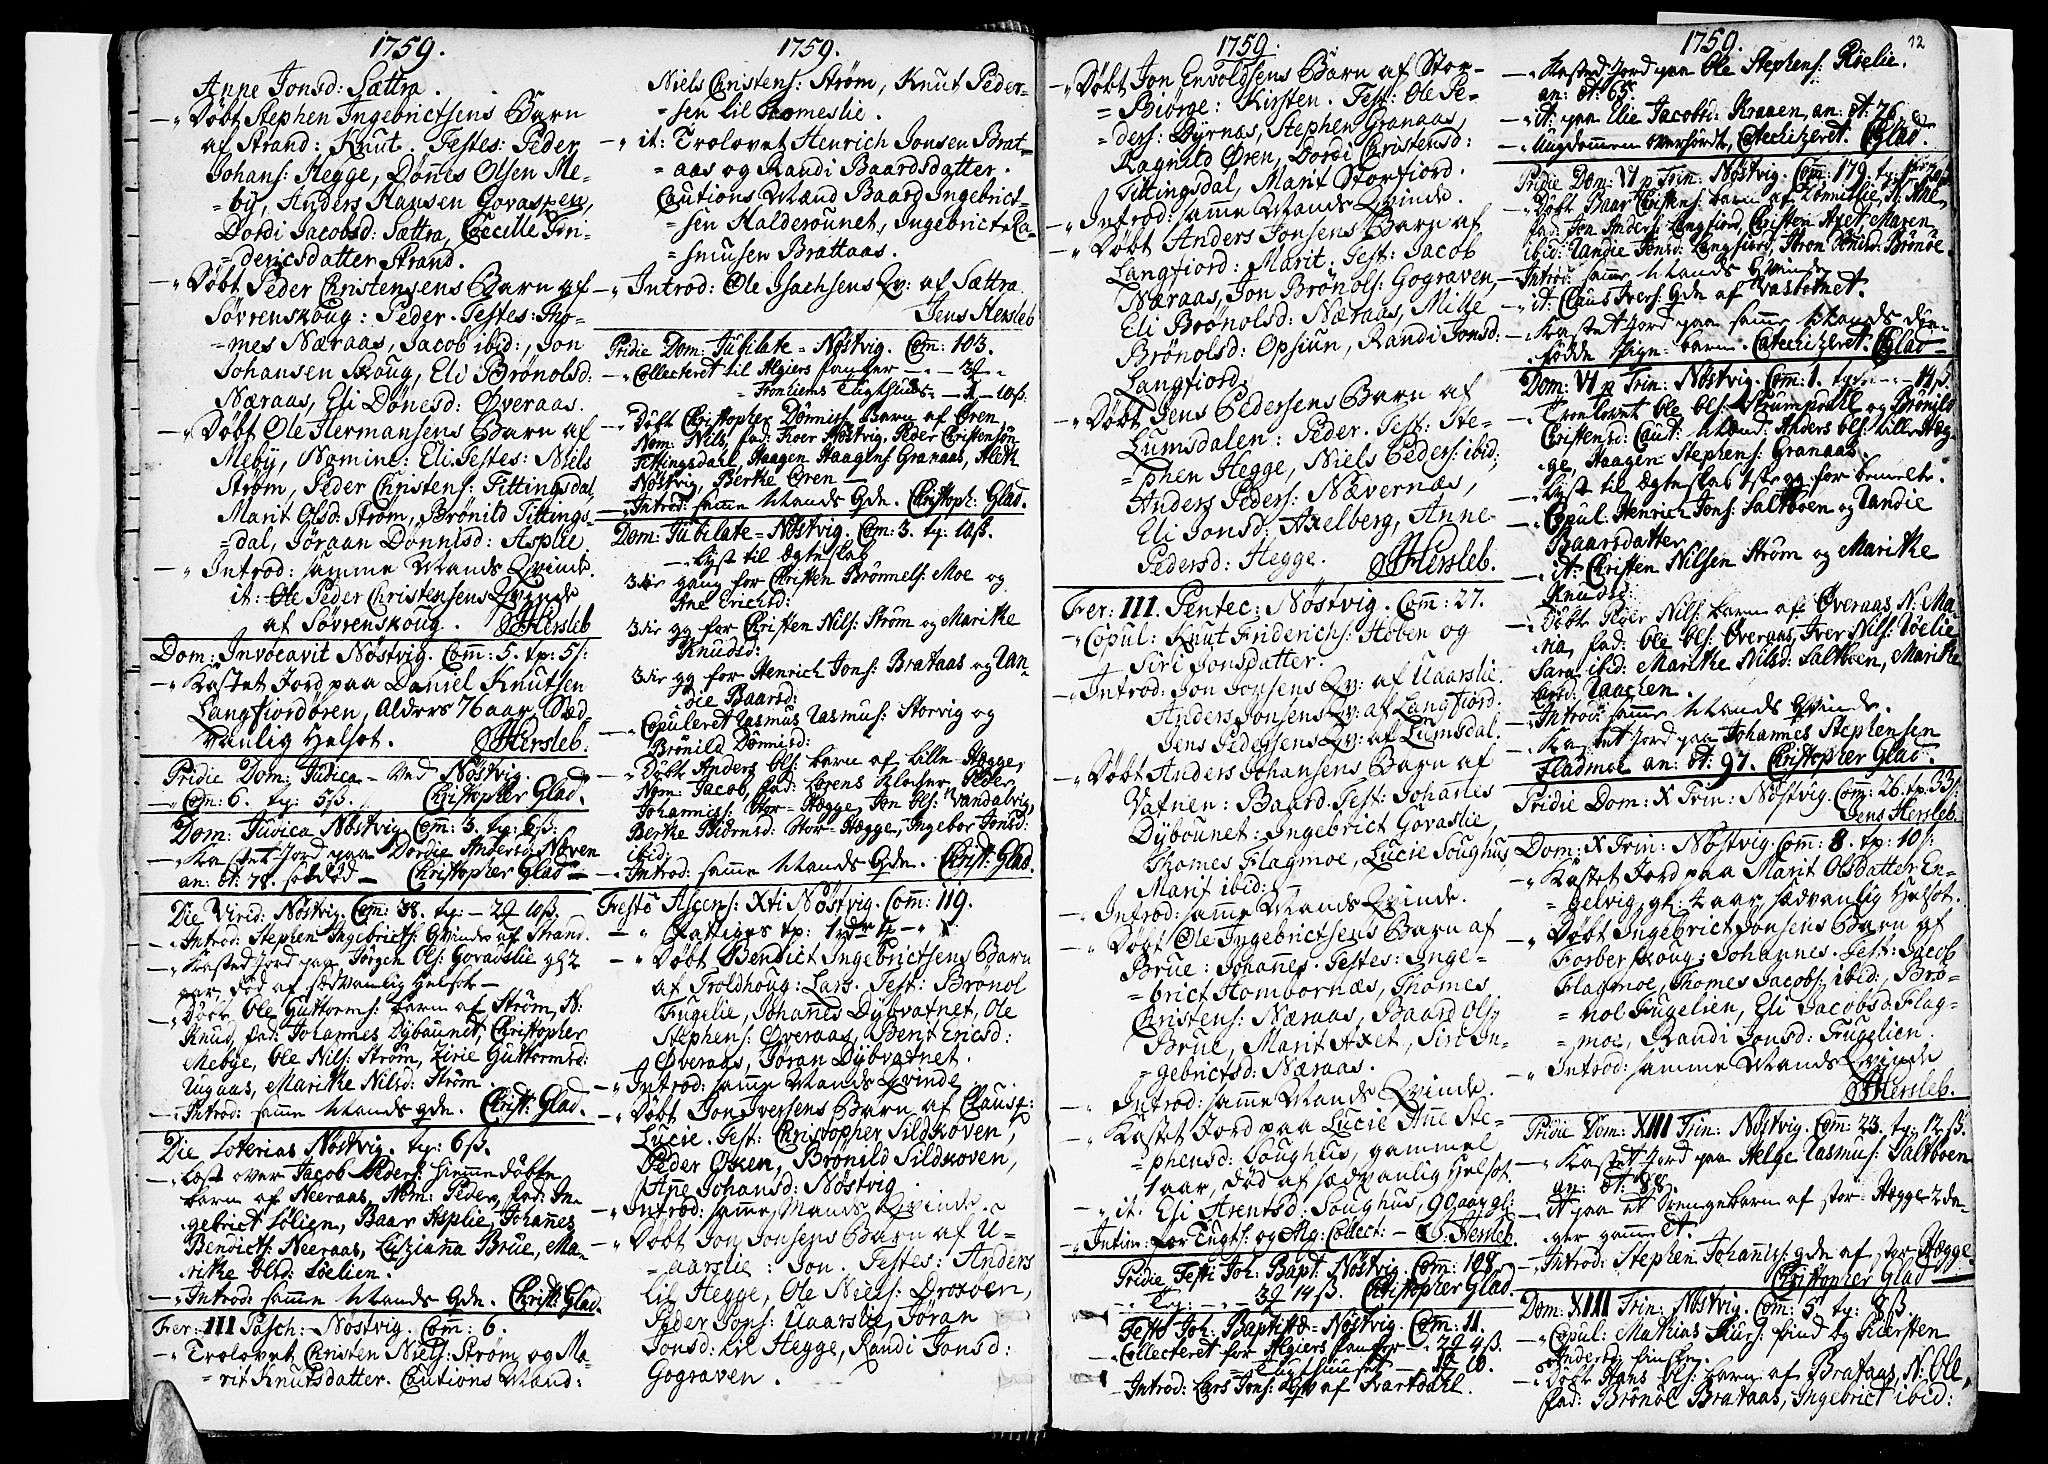 1759.
Anne Jonsd: Sættra.
Døbt Stephen Ingebrictsens Barn
af Strand: Knut. Testes: Peder
Johans: Hegge, Dønnes Olsen Me-
=by, Anders Hansen Govaspen,
Dordi Jacobsd: Sættra, Cæcille Fri-
=dericsdatter Strand.
Døbt Peder Christensens Barn af
Søvrenskoug: Peder. Testes: Tho-
=mes Næraas, Jacob ibid:, Jon
Johansen Skoug, Eli Brønolsd:
Næraas, Eli Dönesd: Øveraas.
Døbt Ole Hermansens Barn af
Meby, Nomine: Eli. Testes: Niels
Strøm, Peder Christens: Tittingsdal,
Marit Olsd: Strøm, Brønild Tittings-
=dal, Jöraan Dönnisd: Asplie
Introd: samme Mands Qvinde.
it: Ole Peder Christensens Qvinde
af Søvrenskoug. JHersleb
Dom: Invocavit Nøstvig. Comm: 5. tp: 5/:
Kastet Jord paa Daniel Knutsen
Langfiordøren, Alders 76 aar. Sæd
vanlig Helsot. JHersleb.
Pridie Dom: Judica - Ved Nøstvig.
Com: 6. tp: 5ß. Christopher Glad.
Dom: Judica Nøstvig. Comm: 3. tp: 6ß:
Kastet Jord paa Dordie Andersd: Næven
an: æt: 78. sotdød - Christopher Glad
Die Virid: Nøstvig. Com: 38. tp: - 2q 10ß.
Introd: Stephen Ingebricts: Qvinde af Strand.
Kasted Jord paa Jørgen Ols: Govaaslie gl: 2
aar, død af sædvanlig Helsot -
Døbt Ole Guttorms: barn af Strøm, N:
Knud, fad: Johannes Dybaunet, Christopher
Mebye, Ole Nils: Strøm, Zirie Guttormsd:
Ugaas, Marithe Nilsd: Strøm.
Introd: samme Mands qde. Christ: Glad.
Die Soterias Nøstvig. tp: 6ß.
Læst over Jacob Peders: hjemmedøbte
barn af Neeraas, Nom: Peder, fad: In-
gebrict Sølien, Baar Asplie, Johannes
Bendicts: Neeraas, Lusianna Brue, Ma-
rithe Olsd: Søelien.
Introd: samme Mands Qde. Christ: Glad.
Fer: III Pasch: Nøstvig. Comm: 6.
Trolovet Christen Niels: Strøm og Ma-
=rit Knutsdatter. Cautions Mænd:
1759.
Niels Christens: Strøm, Knut Peder-
=sen lil Homeslie.
it: Trolovet Henrich Jonsen Brat-
=aas og Randi Baardsdatter.
Cautions Mænd Baard Ingebrict-
=sen Halderounet, Ingebrict Ra-
=smusen Brattaas.
Introd: Ole Isachsens Qv: af Sættra.
Jens Hersleb
Pridie Dom: Jubilate = Nøstvig. Com: 103.
Collecteret til Algiers fanger
Tronhiems Tugthuus - 1 - 10ß.
Døbt Christopher Dönnis: Barn af Øren,
Nom: Nils, fad: Iver Nøstvig, Peder Christensøn
Tittingsdahl, Haagen Haagens: Granaas, Aleth
Nøstvig, Berthe Øren
Introd: samme Mands Qde. Christoph: Glad.
Dom: Jubilate = Nøstvig. Com: 3. tp: 10ß.
Lyst til Ægteskab
3die gang for Christen Brønnels: Moe og
Ane Erichsd:
3die gg for Christen Nils: Strøm og Marithe
Knudsd:
3die gg for Henrich Jons: Brataas og Ran-
die Baarsd:
Copuleret Rasmus Rasmus: Storvig og
Brønild Dönnisd:
Døbt Anders Ols: barn af Lille Hægge,
Nom: Jacob, fad: Lorens Klouser, Peder
Johannis: Stor-Hægge, Jon Ols: Vandalvig,
Berthe Biørnsd: Stor-Hægge, Ingebor Jonsd:
ibid:
Introd: samme Mands Qde. Christ: Glad.
Festo Ascens: Xti Nøstvig. Comm: 119.
Fattiges tp:
Døbt Bendict Ingebrictsens Barn
af Troldhoug: Lars. Test: Brønol
Fugelie, Johanes Dybvatnet, Ole
Stephens: Øveraas, Berit Ericsd:
Øveraas, Jöran Dybvatnet.
Introd: samme Mands Qvinde.
Døbt Jon Iversens Barn af Clauset:
Lucie. Test: Christopher Sildskoven,
Peder Oxen, Brønild Sildskoven,
Anne Johansd: Nøstvig
Introd: samme Mands Qvinde.
Døbt Jon Jonsens Barn af U-
=aarslie: Jon. Testes: Anders
lil Hegge, Ole Niels: Drosven,
Peder Jons: Uaarslie, Jöran
Jonsd: lil Hegge, Randi Jonsd:
Gograven.
1759.
Døbt Jon Envoldsens Barn af Stor-
=Biörge: Kirsten. Test: Ole Pe-
=ders: Dyrnas, Stephen Granaas,
Ragnild Øren, Dordi Christensd:
Tittingsdal, Marit Storfiord.
Introd: samme Mands Qvinde.
Døbt Anders Jonsens Barn af
Langfiord: Marit. Test: Jacob
Næraas, Jon Brönols: Gograven,
Eli Brønolsd: Næraas, Mille
Brønolsd: Opsiun, Randi Jonsd:
Langfiord.
Døbt Jens Pedersens Barn af
Lumsdalen: Peder. Test: Ste-
=phen Hegge, Niels Peders: ibid:
Anders Peders: Nævernæs,
Eli Jonsd: Axelberg, Anne
Pedersd: Hegge. JHersleb.
Fer: III. Pentec: Nøstvig. Comm: 27.
Copul: Knut Friderichs: Hoben og
Siri Jonsdatter.
Introd: Jon Jonsens Qv: af Uaarslie.
Anders Jonsens Qv: af Langfiord.
Jens Pedersens Qv: af Lumsdal.
Døbt Anders Johansens Barn af
Vatnen: Baard. Test: Johanes
Dybounet: Ingebrict Govaslie
Thomes Flagmoe, Lucie Soughus,
Marit ibid:
Introd: samme Mands Qvinde.
Døbt Ole Ingebrictsens Barn af
Brue: Johannes. Testes: Inge-
=brict Hombornæs, Thomes
Christens: Næraas, Baard Ols:
Brue, Marit Axet, Siri In-
=gebrictsd: Næraas.
Introd: samme Mands Qvinde.
Kastet Jord paa Lucie Ane Ste-
=phensd: Soughus, gammel
1 aar, død af sædvanlig Helsot.
it: Eli Arentsd: Soughus, 90 aar gl:
Intim: for Tugts: og Alg: Collect: - J. Hersleb.
Pridie Festi Joh: Bapt: Nøstvig. Com: 108.
Tp: - 3q 14ß. Christopher Glad.
Festo Joh: Baptistæ = Nøstvig. Com: 11.
Collecteret for Algiers fanger - 2q 4ß.
Tugthuuset -
Introd: Lars Jons: qde af Karsdahl.
1759.
12
Kasted Jord paa Ole Stephens: Röelie.
an: æt: 65.
it: paa Elie Jacobsd: Kraaen, an: æt: 76
Ungdommen overhørdt, Catechizeret. CGlad.
Pridie Dom: VI p Trin: Nøstvig. Com: 179. tp:
Døbt Baar Christens: barn af Dömmislie, N: Ane,
fad: Jon Anders: Langfiord, Christen Axet, Maren
ibid: Randie Jonsd: Langfiord,
Introd: samme Mands Qvinde
it: Claus Ivers: Qde af Vastötnet.
Kastet Jord paa samme Mands døe-
fødde Pige-barn. Catechizeret. CGlad
Dom: VI p Trin: Nøstvig. Com: 1. tp: - 14ß.
Troelovet Ole Ols: Skrumpdahl og Brønild
Christensd: Caut: Mænd: Anders Ols: Lille Hæg-
ge, Haagen Stephens: Granaas.
Lyst til Ægteskab 1ste gg. for bemelte.
Copul: Henrich Jons: Saltboen og Randie
Baarsdatter
it: Christen Nilsen Strøm og Marithe
Knudsd:
Døbt Peder Nils: barn af Øveraas, N: Ma-
ria, fad: Ole Ols: Øveraas, Iver Nils: Söelie,
Sara ibid: Marithe Nilsd: Saltboen, Marithe
Larsd: Raaehen.
Introd: samme Mands Qvinde.
Kastet Jord paa Johannes Stephensen
Fladmoe an: æt: 97. Christopher Glad.
Pridie Dom: X Trin: Nøstvig. Com: 26. tp. 33/:
Jens Hersleb.
Dom: X Trin: Nøstvig. Comm: 8. tp: 10/:
Kastet Jord paa Marit Olsdatter En-
=gelvig, gl: 2 aar, sædvanlig Helsot.
Døbt Ingebrict Jonsens Barn af
Forberskoug: Johannes. Test: Jacob
Flagmoe, Thomes Jacobs: ibid:, Brø-
=nol Fugelien, Eli Jacobsd: Flag-
=moe, Randi Jonsd: Fugelien.
Introd: samme Mands Qvinde
JHersleb.
Pridie Dom: XIII Trin: Nøstvig. Com: 23. tp: 12ß.
Kastet Jord paa Helge Rasmus: Saltboen
an: æt: 88.
it paa et Drengebarn af Stor-Hægge 2 da-
ger gammelt.
Introd: Stephen Johannis: qde af stor Hægge
Christopher Glad
Dom: XIII Trin: Nøstvig. Com: 5. tp: 8ß.
Copul: Mathias Lurs: find og Kiersten
Andersd:
Døbt Hans Ols: barn af Brataas, N: Ole,
fad: Brønöe Brataas, Ingebrict ibid: